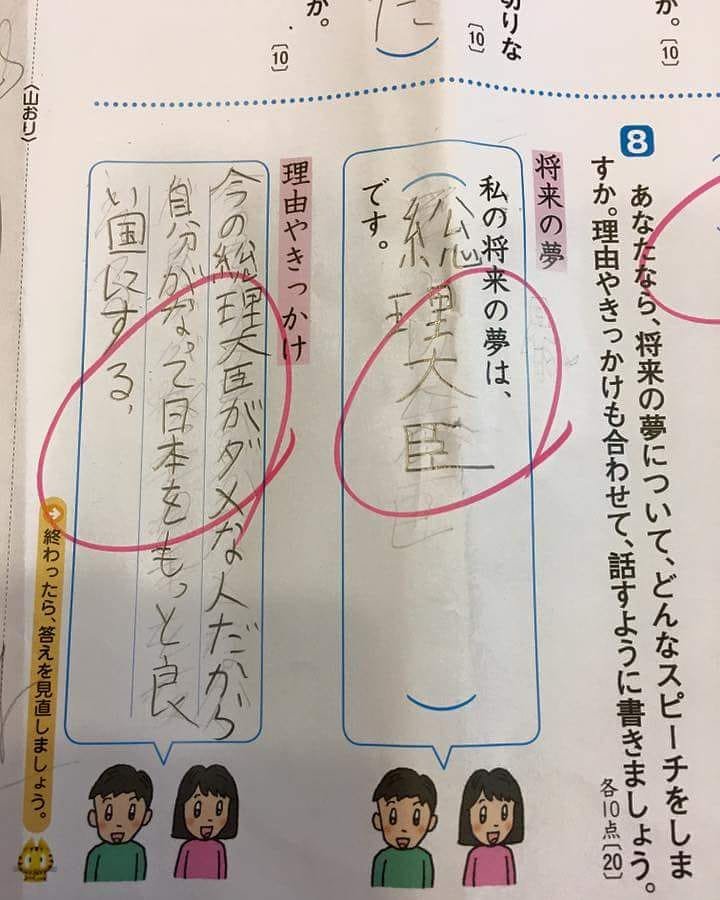 か。
〔10〕
切りな
〔10〕
た
か。
〔10〕
8
あなたなら、将来の夢について、どんなスピーチをしま
すか。理由やきっかけも合わせて、話すように書きましょう。
各10点〔20〕
将来の夢
私の将来の夢は、
総理大臣
です。
理由やきっかけ
今の総理大臣がダメな人だから
自分がなって日本をもっと良
い国にする、
終わったら、答えを見直しましょう。
〈山おり〉